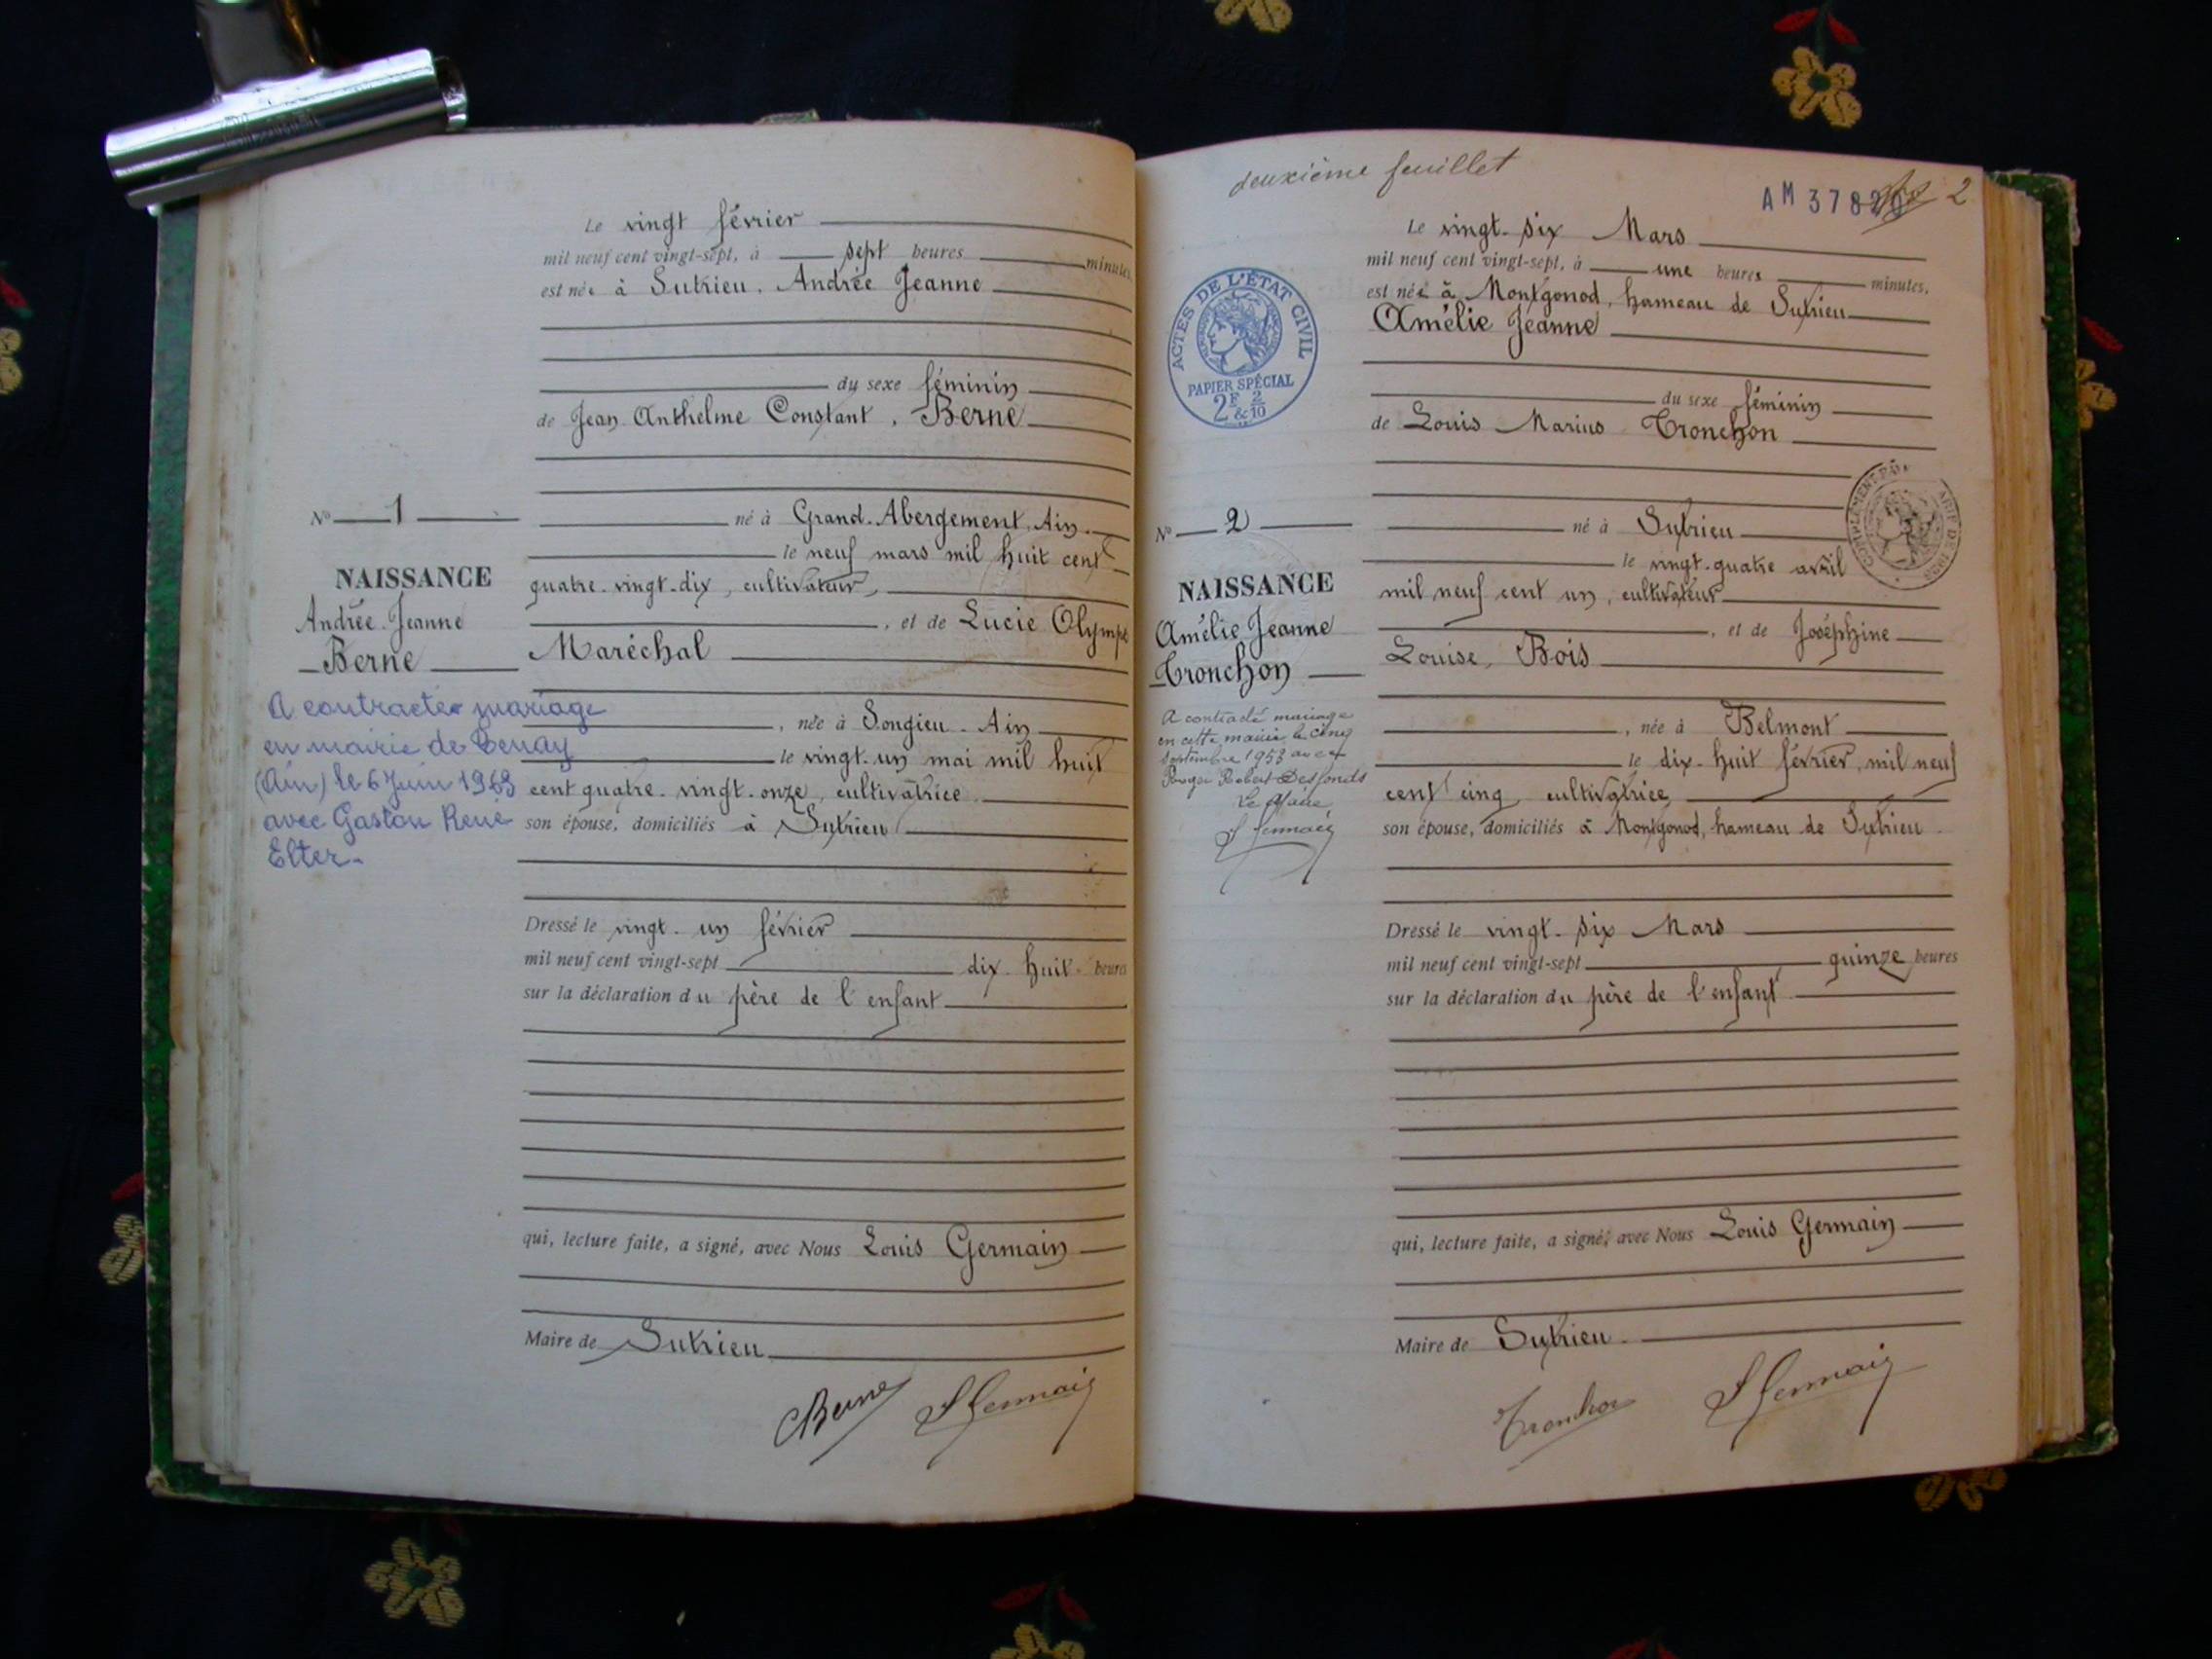 Le vingt février
mil neuf cent vingt-sept, à sept heures minutes
est née à Sutrieu, Andrée Jeanne
du sexe féminin
de Jean Anthelme Constant, Berne
né à Grand-Abergement, Ain
le neuf mars mil huit cent
quatre-vingt-dix, cultivateur,
, et de Lucie Olympe
Maréchal
, née à Songieu - Ain
le vingt-un mai mil huit
cent quatre-vingt-onze, cultivatrice
son épouse, domiciliés à Sutrieu
Dressé le vingt-un février
mil neuf cent vingt-sept dix-huit heures
sur la déclaration du père de l'enfant
qui, lecture faite, a signé, avec Nous Louis Germain
Maire de Sutrieu
Berne L Germain
N° 1
NAISSANCE
Andrée Jeanne
Berne
A contracter mariage
en mairie de Tenay
(Ain) le 6 Juin 1963
avec Gaston René
Elter.
deuxième feuillet
AM 378 2
Le vingt-six Mars
mil neuf cent vingt-sept, à une heures minutes.
est née à Montgonod, hameau de Sutrieu
Amélie Jeanne
du sexe féminin
de Louis Marius Tronchon
né à Sutrieu
le vingt-quatre avril
mil neuf cent un, cultivateur
, et de Joséphine
Louise, Bois
, née à Belmont
le dix-huit février, mil neuf
cent cinq, cultivatrice
son épouse, domiciliés à Montgonod, hameau de Sutrieu.
Dressé le vingt-six Mars
mil neuf cent vingt-sept quinze heures
sur la déclaration du père de l'enfant
qui, lecture faite, a signé, avec Nous Louis Germain
Maire de Sutrieu.
Tronchon L Germain
ACTES DE L'ÉTAT CIVIL
PAPIER SPÉCIAL
2F & 2/10
N° 2
NAISSANCE
Amélie Jeanne
Tronchon
A contracté mariage
en cette mairie le cinq
septembre 1953 avec
Robert Desfonds
Le Maire
L Germain